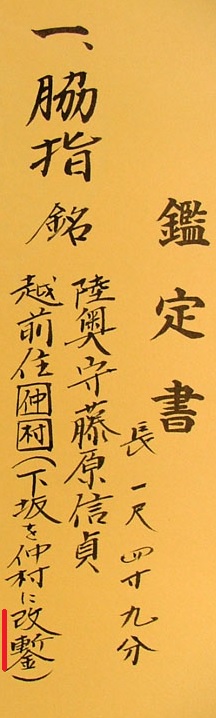 鑑定書
一、脇指 銘
長一尺四寸九分
陸奥守藤原信貞
越前住仲村(下坂を仲村に改鏨)